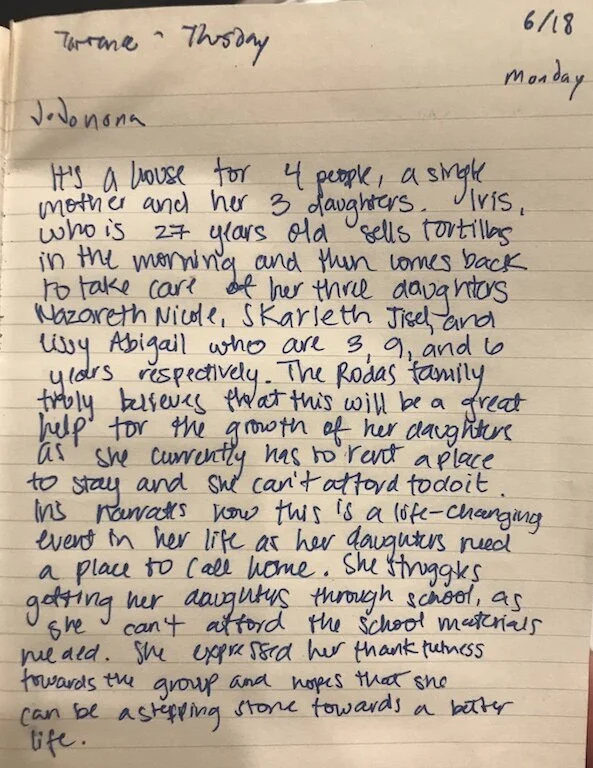 6/18
Thusday
Monday
It's a house for 4 people, a single
mother and her 3 daughters. Iris,
who is 27 years old sells tortillas
in the morning and then comes back
to take care of her three daughters
Nazareth Nicole, Skarleth Jisel, and
Lissy Abigail who are 3, 9, and 6
years respectively. The Rodas family
truly believes that this will be a great
help for the growth of her daughters
as she currently has to rent a place
to stay and she can't afford to do it.
Iris narrates how this is a life-changing
event in her life as her daughters need
a place to call home. She struggles
getting her daughters through school, as
she can't afford the school materials
needed. She expressed her thankfulness
towards the group and hopes that she
can be a stepping stone towards a better
life.